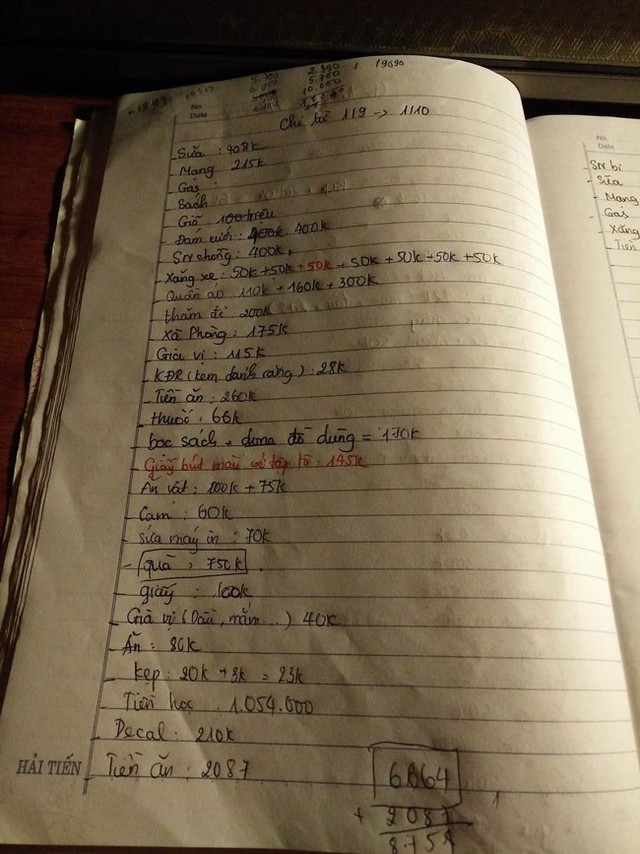 19690
2.390
5.200
10.000
No.
Date
Chi từ 1/9 -> 1/10
- Sữa : 908k
- Mạng 215k
- Gas :
- Sách
- Giỗ 100 triệu
- Đám cưới : 400k 400k
- SN chồng : 400k.
- Xăng xe : 50k + 50k + 50k + 50k + 50k + 50k + 50k
- Quần áo 110k + 160k + 300k
- thăm đẻ 200k
- Xà Phòng : 175k
- Gia vị : 115k
- KĐR (kem đánh răng) : 28k
- Tiền ăn : 260k
- thuốc : 66k
- bọc sách + dụng đồ dùng = 170k
- Giấy bút màu vở tập tô : 145k
- Ăn vặt : 100k + 75k
- Cam : 60k
- sửa máy in : 70k
- quà : 750k .
- giấy : 100k
- Gia vị (Dầu, mắm...) 40k
- Ăn : 80k
- kẹp : 20k + 3k = 23k
- Tiền học : 1.054.000
- Decal : 210k
- Tiền ăn : 2087
6664
+ 2087
8751
HẢI TIẾN
No.
Date
SN bi
- Sữa
- Mạng
- Gas
Xăng
Tiền